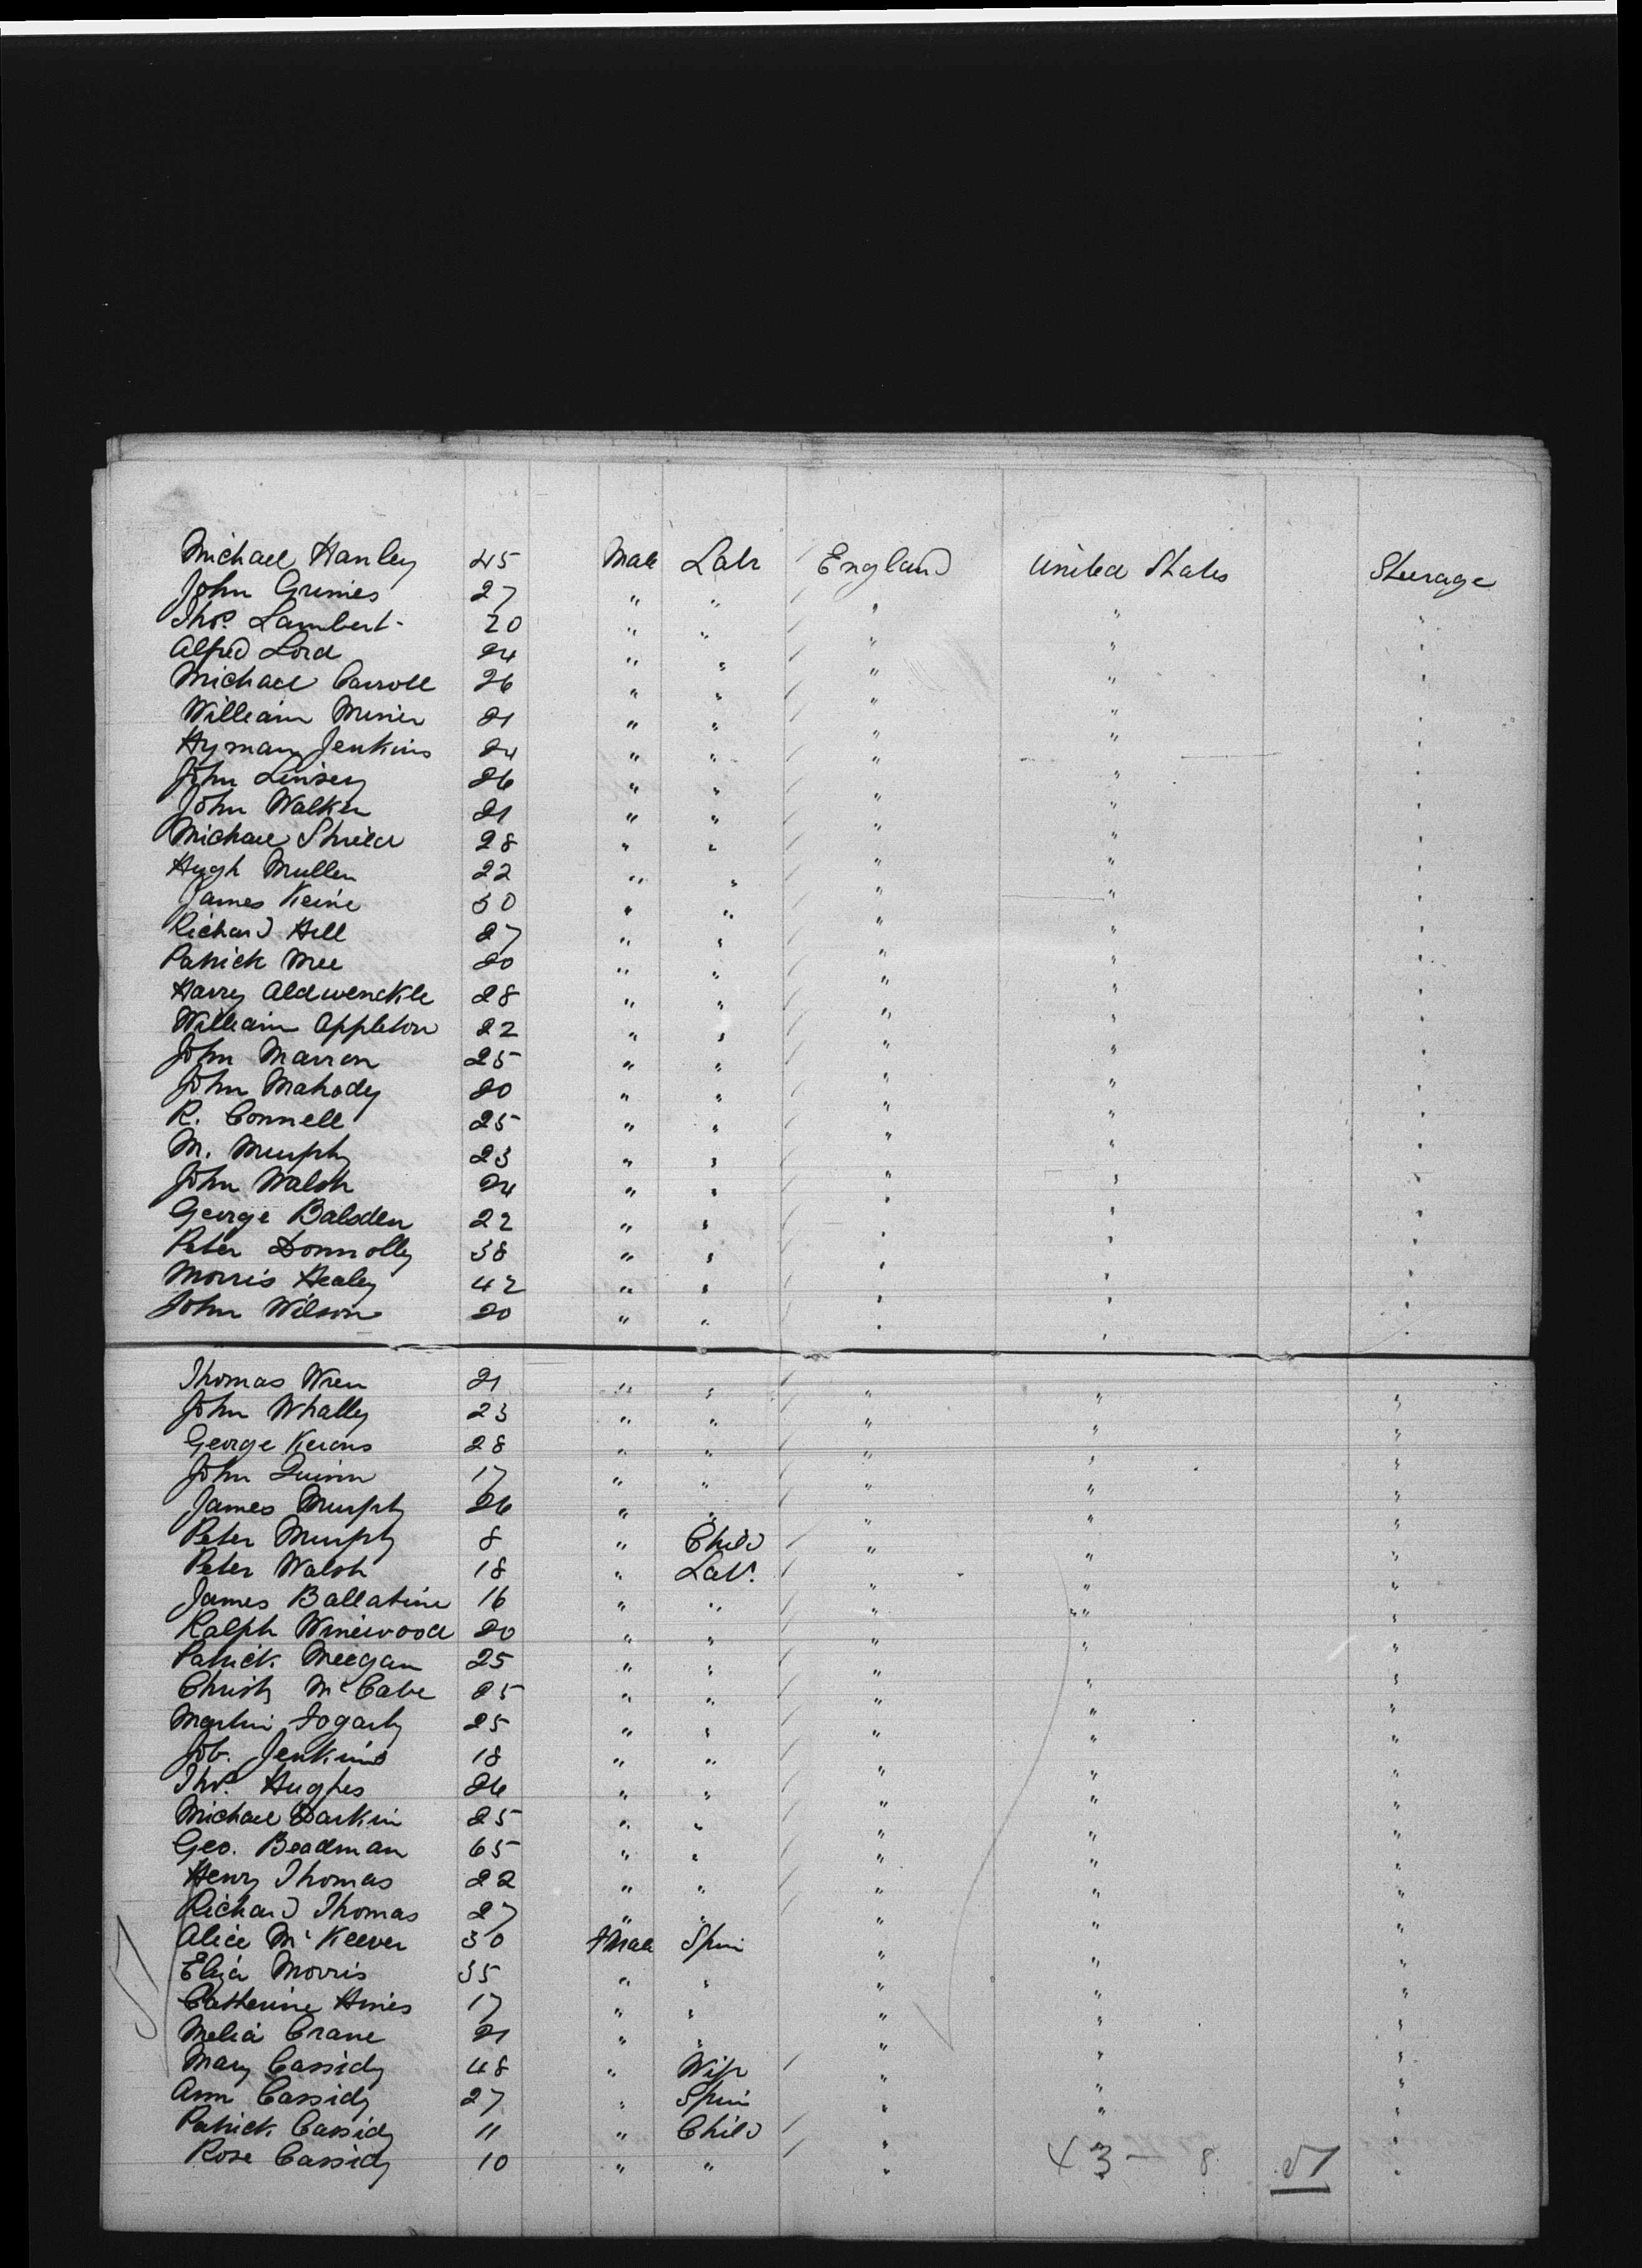 Michael Hanley 45 Male Labr England United States Steerage
John Grimes 27 " " " " "
Thos. Lambert 20 " " " " "
Alfred Lord 24 " " " " "
Michael Carroll 26 " " " " "
William Minier 21 " " " " "
Hyman Jenkins 24 " " " " "
John Linsey 26 " " " " "
John Walker 21 " " " " "
Michael Shield 28 " " " " "
Hugh Mullen 22 " " " " "
James Keine 30 " " " " "
Richard Hill 27 " " " " "
Patrick Mee 20 " " " " "
Harry Aldwenckle 28 " " " " "
William Appleton 22 " " " " "
John Marron 25 " " " " "
John Mahody 20 " " " " "
R. Connell 25 " " " " "
M. Murphy 23 " " " " "
John Walsh 24 " " " " "
George Balsden 22 " " " " "
Peter Donnolly 38 " " " " "
Morris Healey 42 " " " " "
John Wilson 20 " " " " "
Thomas Wren 21 " " " " "
John Whally 23 " " " " "
George Kerons 28 " " " " "
John Quinn 17 " " " " "
James Murphy 26 " " " " "
Peter Murphy 8 " Child " " "
Peter Walsh 18 " Labr. " " "
James Ballatine 16 " " " " "
Ralph Winewood 20 " " " " "
Patrick Meegan 25 " " " " "
Christy McCabe 25 " " " " "
Martin Fogarty 25 " " " " "
Job. Jenkins 18 " " " " "
Thos. Hughes 26 " " " " "
Michael Darkin 25 " " " " "
Geo. Beadman 65 " " " " "
Henry Thomas 22 " " " " "
Richard Thomas 27 " " " " "
Alice McKeever 30 FMale Spin " " "
Eliza Morris 35 " " " " "
Catherine Hines 17 " " " " "
Melia Crane 21 " " " " "
Mary Cassidy 48 " Wife " " "
Ann Cassidy 27 " Spin " " "
Patrick Cassidy 11 " Child " " "
Rose Cassidy 10 " " " " "
43 - 8 51
51